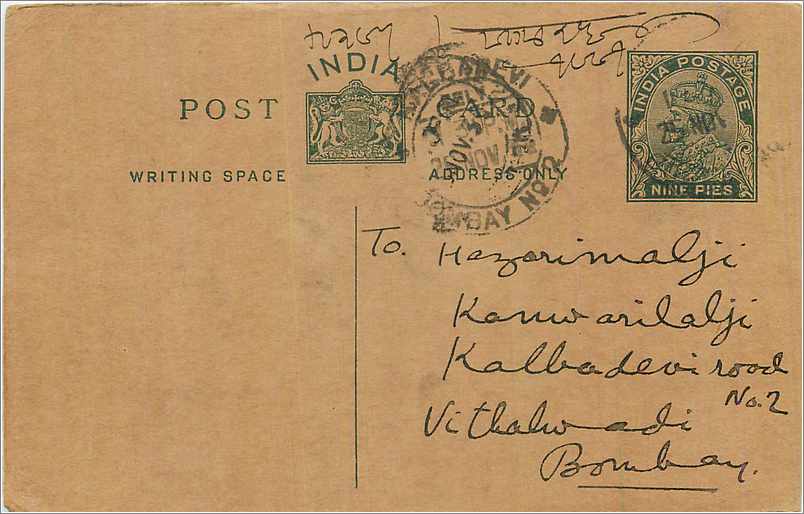 INDIA
POST CARD
WRITING SPACE
ADDRESS ONLY
INDIA POSTAGE
NINE PIES
KALBADEVI
BOMBAY No. 2
NOV. 3
25 NOV
25 NOV
To. Hazarimalji
Kanwarilalji
Kalbadevi rood
No. 2
Vithalwadi
Bombay.